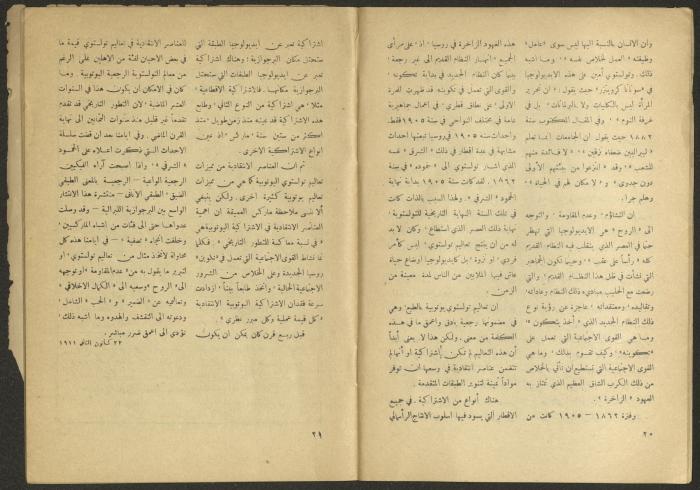 وان الانسان بالنسبة اليها ليس سوى «عامل»
وظيفته «العمل لخلاص نفسه» وما اشبه
ذلك. وتولستوي أمين على هذه الايديولوجيا
في «سوناتا كرويتزر» حيث يقول: «ان تحرير
المرأة ليس بالكليات ولا بالبرلمانات، بل في
غرفة النوم» وفي المقال المكتوب سنة
١٨٦٢ حيث يقول ان الجامعات انما تعلم
«ليبراليين ضعفاء نزقين» «لا فائدة منهم
للشعب» وقد «انتزعوا من بيئتهم الأولى
دون جدوى» و«لا مكان لهم في الحياة»
وهلم جرا.
ان التشاؤم، وعدم المقاومة، والتوجه
الى «الروح» هو الايديولوجيا التي تظهر
حتماً في العصر الذي ينقلب فيه النظام القديم
كله «رأساً على عقب» وحينما تكون الجماهير
التي نشأت في ظل هذا النظام القديم، والتي
رضعت مع الحليب مبادىء ذلك النظام وعاداته،
وتقاليده، ومعتقداته، عاجزة عن رؤية نوع
ذلك النظام الجديد الذي «أخذ يتكون»،
وما هي القوى الاجتماعية التي تعمل على
«تكوينه» وكيف تقوم بذلك، وما هي
القوى الاجتماعية التي تستطيع ان تأتي بالخلاص
من ذلك الكرب الشاق العظيم الذي تمتاز به
العهود «الزاخرة».
وفترة ١٨٦٢ – ١٩٠٥ كانت من
٢٠
هذه العهود الزاخرة في روسيا، اذ، على مرأى
الجميع، انهار النظام القديم الى غير رجعة،
بينما كان النظام الجديد في بداية تكونه،
والقوى التي تعمل في تكوينه قد ظهرت للمرة
الاولى، على نطاق قطري، في اعمال جماهيرية
عامة في مختلف النواحي في سنة ١٩٠٥ فقط.
واحداث سنة ١٩٠٥ في روسيا تبعتها احداث
مشابهة في عدة اقطار في ذلك «الشرق» نفسه
الذي اشار تولستوي الى «جموده» في سنة
١٨٦٢. لقد كانت سنة ١٩٠٥ بداية نهاية
الجمود «الشرقي». ولهذا السبب بالذات كانت
في تلك السنة النهاية التاريخية للتولستوية،
نهاية ذلك العصر الذي استطاع، وكان لا بد
له من ان ينتج تعاليم تولستوي، ليس كأمر
فردي، او نزوة، بل كايديولوجيا اوضاع حياة
عاش فيها الملايين من الناس لمدة معينة من
الزمن.
ان تعاليم تولستوي يوتوبية بالطبع، وهي
في مضمونها رجعية بأدق واعمق ما في هذه
الكلمة من معنى. ولكن هذا لا يعني أبداً
ان هذه التعاليم لم تكن إشتراكية او أنها لم
تتضمن عناصر انتقادية في وسعها ان توفر
مواداً ثمينة لتنوير الطبقات المتقدمة.
هناك أنواع من الاشتراكية. في جميع
الاقطار التي يسود فيها اسلوب الانتاج الرأسمالي
اشتراكية تعبر عن ايديولوجيا الطبقة التي
ستحتل مكان البرجوازية، وهناك اشتراكية
تعبر عن ايديولوجيا الطبقات التي ستحتل
البرجوازية مكانها. فالاشتراكية الاقطاعية،
مثلا، هي اشتراكية من النوع الثاني، وطابع
هذه الاشتراكية قد عينه منذ زمن طويل، منذ
اكثر من ستين سنة، ماركس، اذ عين
انواع الاشتراكية الاخرى.
ثم ان العناصر الانتقادية من مميزات
تعاليم تولستوي اليوتوبية كما هي من مميزات
تعاليم يوتوبية كثيرة اخرى. ولكن ينبغي
ألا ننسى ملاحظة ماركس العميقة ان اهمية
العناصر الانتقادية في الاشتراكية اليوتوبية هي
«في نسبة معاكسة للتطور التاريخي». فكلما
نما نشاط القوى الاجتماعية التي تعمل في «تكوين»
روسيا الجديدة وعلى الخلاص من الشرور
الاجتماعية الحالية، واتخذ طابعاً بيناً، ازدادت
سرعة فقدان الاشتراكية اليوتوبية الانتقادية
«كل قيمة عملية وكل مبرر نظري».
قبل ربع قرن كان يمكن ان يكون
للعناصر الانتقادية في تعاليم تولستوي قيمة ما
في بعض الاحيان لفئة من الاهلين على الرغم
من معالم التولستوية الرجعية اليوتوبية. وما
كان في الامكان ان يكون هذا في السنوات
العشر الماضية، لأن التطور التاريخي قد تقدم
تقدماً غير قليل منذ سنوات الثمانين الى نهاية
القرن الماضي. وفي ايامنا حيث ان قضت سلسلة
الاحداث التي ذكرت اعلاه على الجمود
«الشرقي»، واذا اصبحت آراء الفيكيين
الرجعية الواعية – الرجعية بالمعنى الطبقي
الضيق، الطبقي الاناني – منتشرة هذا الانتشار
الواسع بين البرجوازية الليبرالية – وقد وصلت
عدواها حتى الى فئات من اشباه الماركسيين،
وخلقت اتجاه «تصفية» – في ايامنا هذه كل
محاولة لاتخاذ مثال من تعاليم تولستوي، او
لتبرير ما يقول به من «عدم المقاومة» او توجهه
الى «الروح» وسعيه الى «الكمال الاخلاقي»
وتعاليمه عن «الضمير» و«الحب» الشامل،
ودعوته الى التقشف والهدوء وما اشبه ذلك،
تؤدي الى اعمق ضرر مباشر.
٢٢ كانون الثاني ١٩١١
٢١